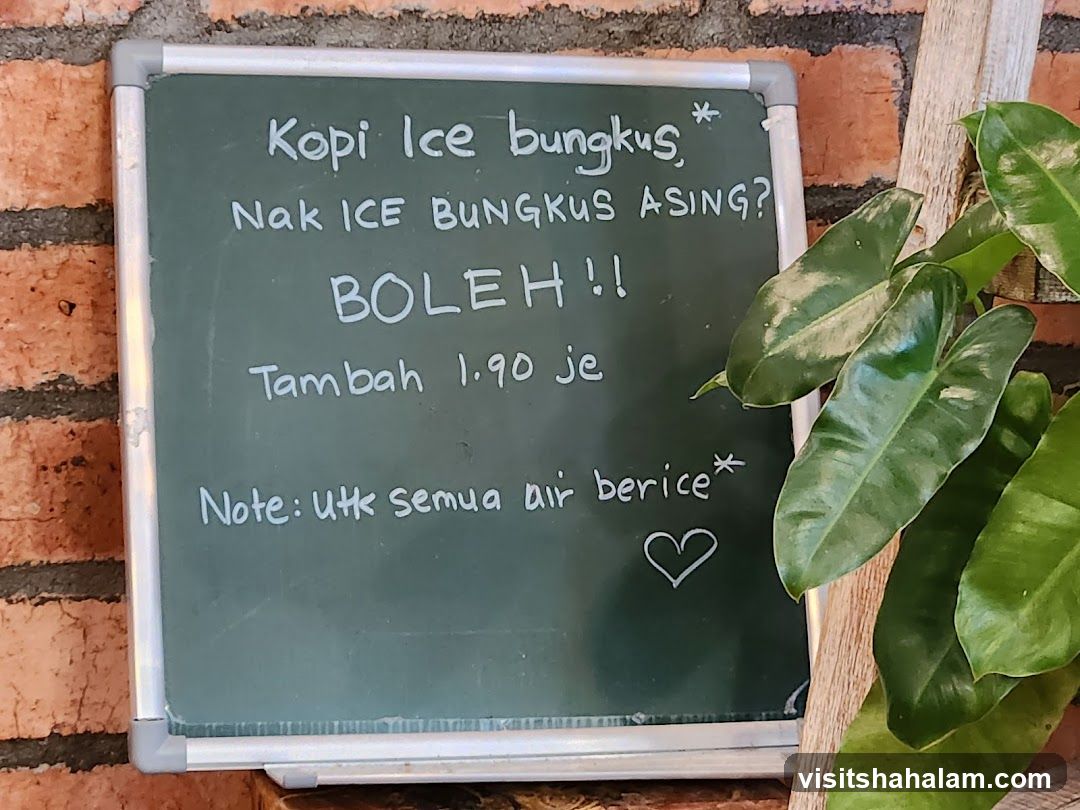 Kopi Ice bungkus,*
Nak ICE BUNGKUS ASING?
BOLEH!!
Tambah 1.90 je
Note: utk semua air berice*
visitshahalam.com